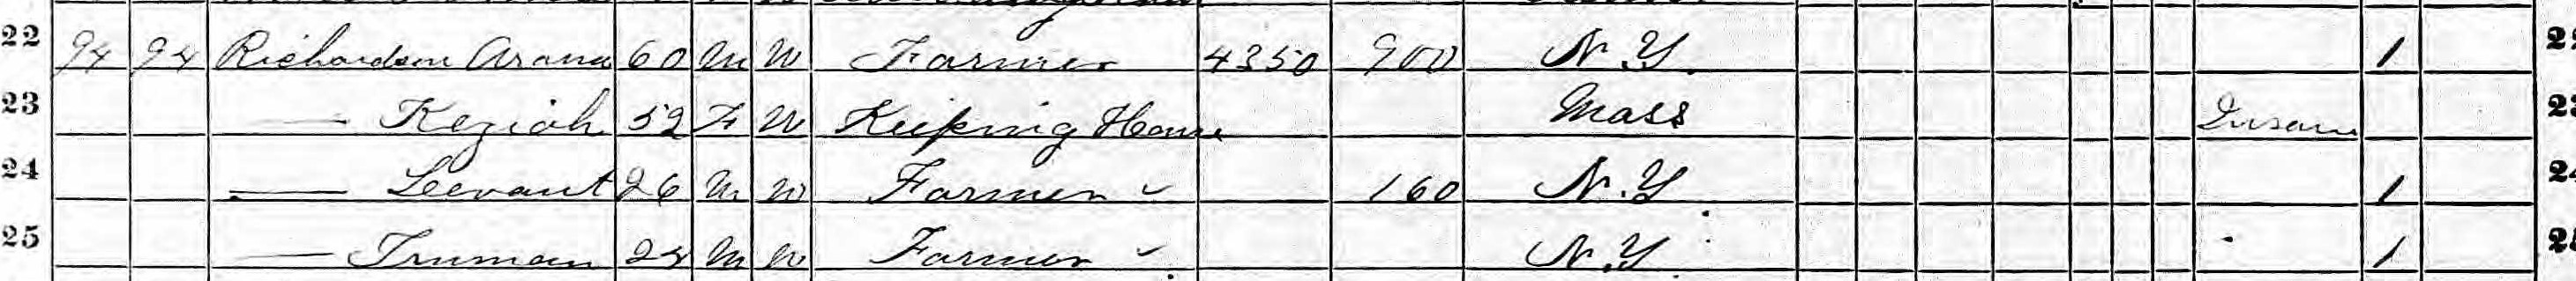 22 94 94 Richardson Arana 60 M W Farmer 4350 900 N.Y. 1
23 — Keziah 52 F W Keeping House Mass Insane 23
24 — Leevant 26 M W Farmer 160 N.Y 1
25 — Truman 24 M W Farmer N.Y. 1